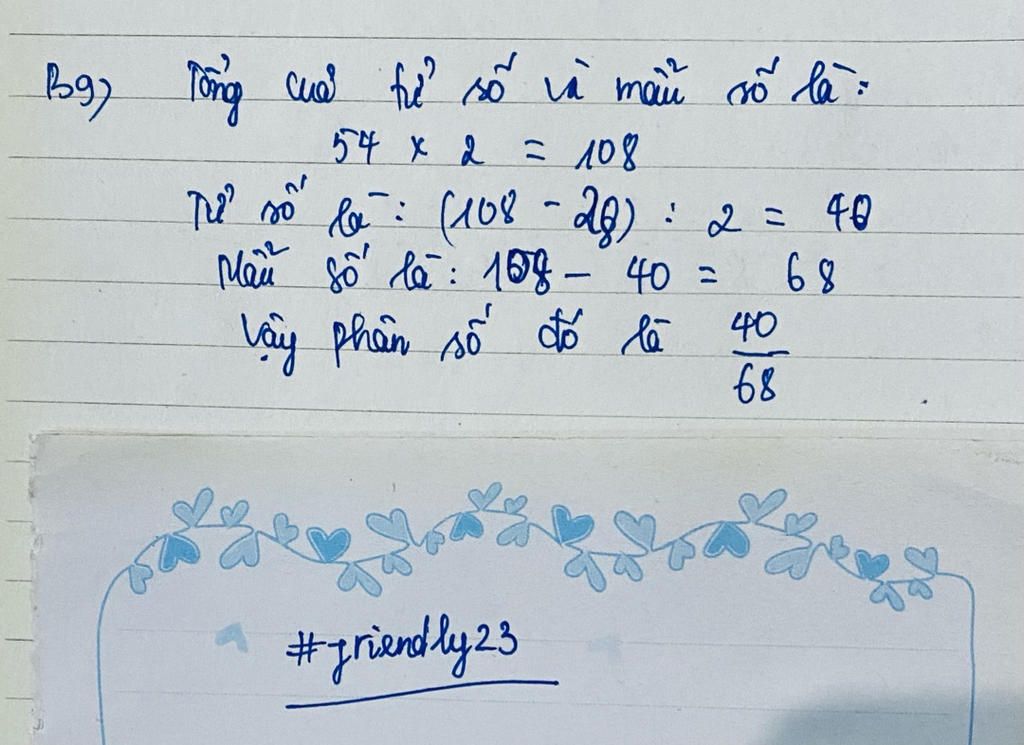 B9) Tổng của tử số và mẫu số là:
54 x 2 = 108
Tử số là: (108 - 28) : 2 = 40
Mẫu số là: 108 - 40 = 68
Vậy phân số đó là 40/68
#friendly23